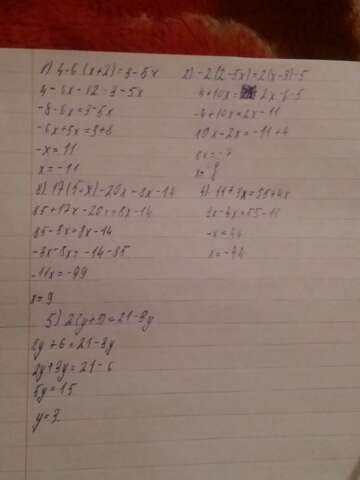 1) 4-6(x+2)=3-5x
4-6x-12=3-5x
-8-6x=3-5x
-6x+5x=3+8
-x=11
x=-11
2) -2(2-5x)=2(x-3)-5
-4+10x= 2x-6-5
-4+10x=2x-11
10x-2x=-11+4
8x=-7
3) 17(5-x)-20x=8x-14
85+17x-20x=8x-14
85-3x=8x-14
-3x-8x=-14-85
-11x=-99
x=9
4) 11+3x=55+4x
3x-4x=55-11
-x=44
x=-44
5) 2(y+3)=21-3y
2y+6=21-3y
2y+3y=21-6
5y=15
y=3